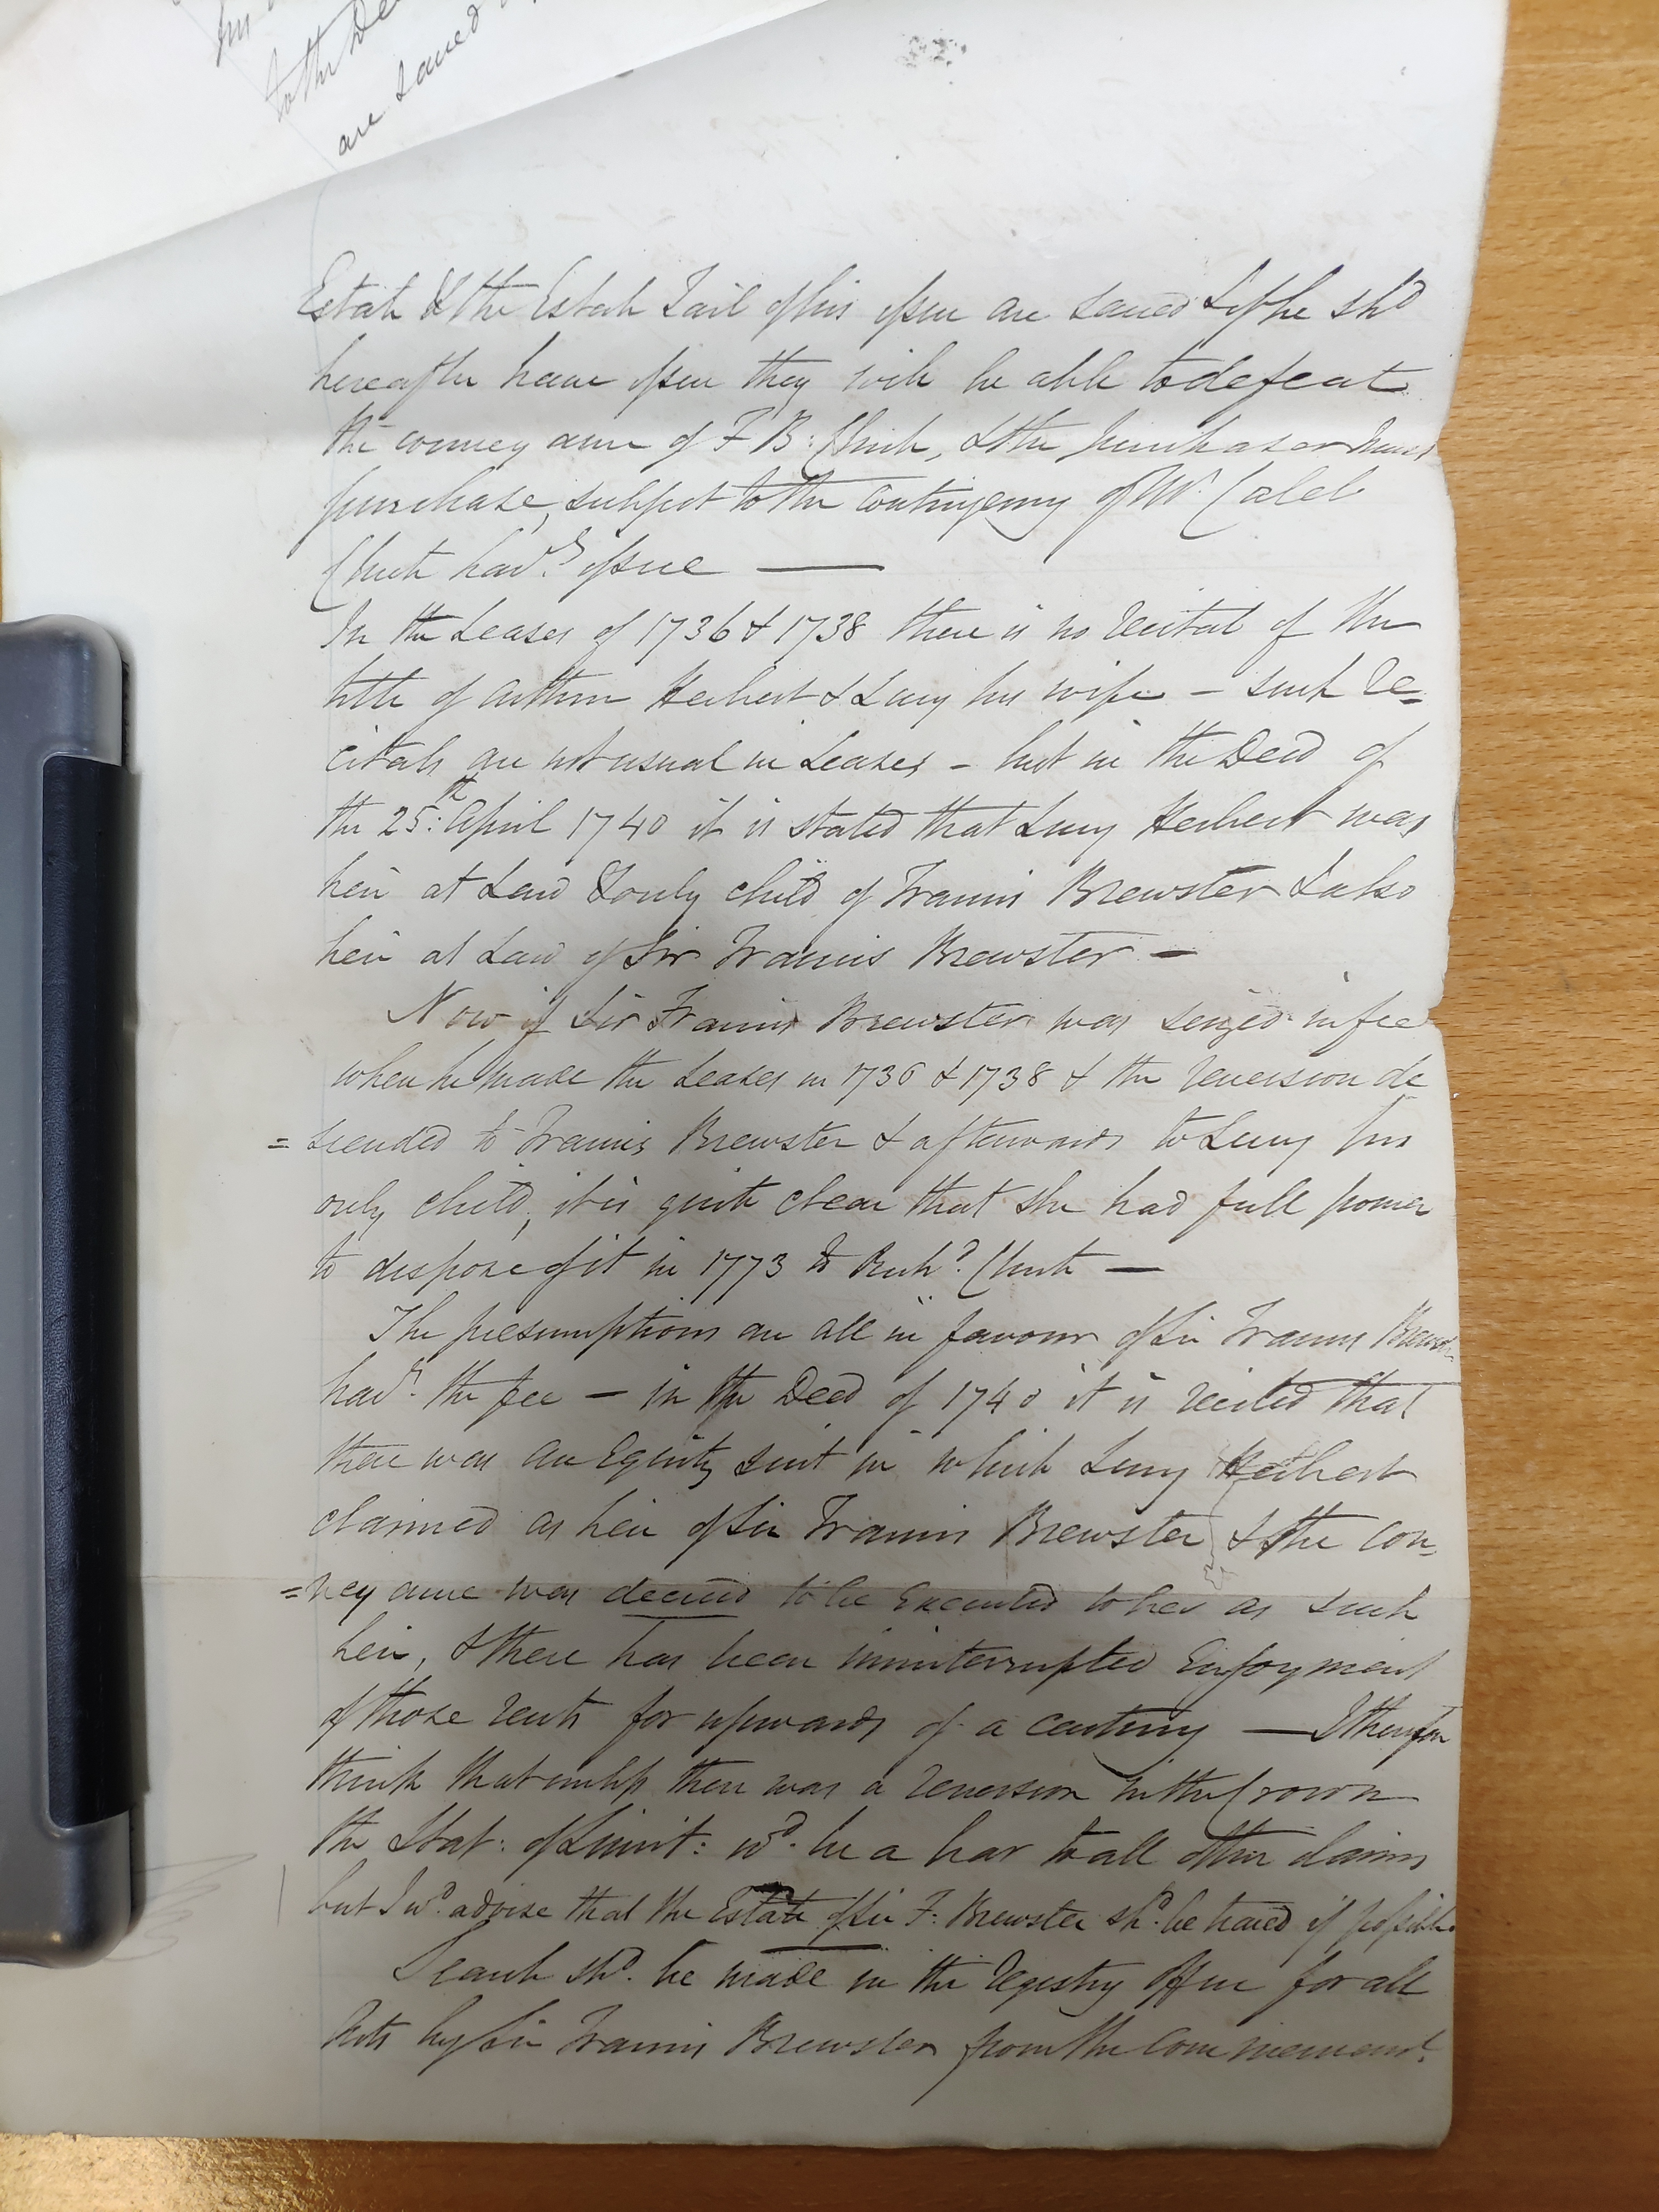 to the De
are saved
Estate & the Estate Tail of his issue are saved & if he shd
hereafter have issue they will be able to defeat
the conveyance of F B: Chute, & the purchaser must
purchase, subject to the contingency of Mr. Caleb
Chute havg. issue —
In the Leases of 1736 & 1738 there is no recital of the
title of Arthur Herbert & Lucy his wife – such re=
citals are not usual in Leases – but in the Deed of
the 25th: April 1740 it is stated that Lucy Herbert was
heir at Law & only child of Francis Brewster & also
heir at Law of Sir Francis Brewster –
Now if Sir Francis Brewster was seized in fee
when he made the Leases in 1736 & 1738 & the reversion de
=scended to Francis Brewster & afterwards to Lucy his
only child, it is quite clear that she had full power
to dispose of it in 1773 to Richd. Chute —
The presumptions are all in favour of Sir Francis Brewster
havg. the fee – in the Deed of 1740 it is recited that
there was an Equity suit in which Lucy Herbert
claimed as heir of Sir Francis Brewster & the con=
=veyance was decreed to be Executed to her as such
heir, & there has been uninterrupted Enjoyment
of those rents for upwards of a century — I therefore
think that unless there was a reversion in the Crown
the Stat: of Limit: wd. be a bar to all other claims
but I wd. advise that the Estate of Sir F: Brewster shd. be traced if possible
Search shd. be made in the Registry Office for all
Acts by Sir Francis Brewster from the commencemt.